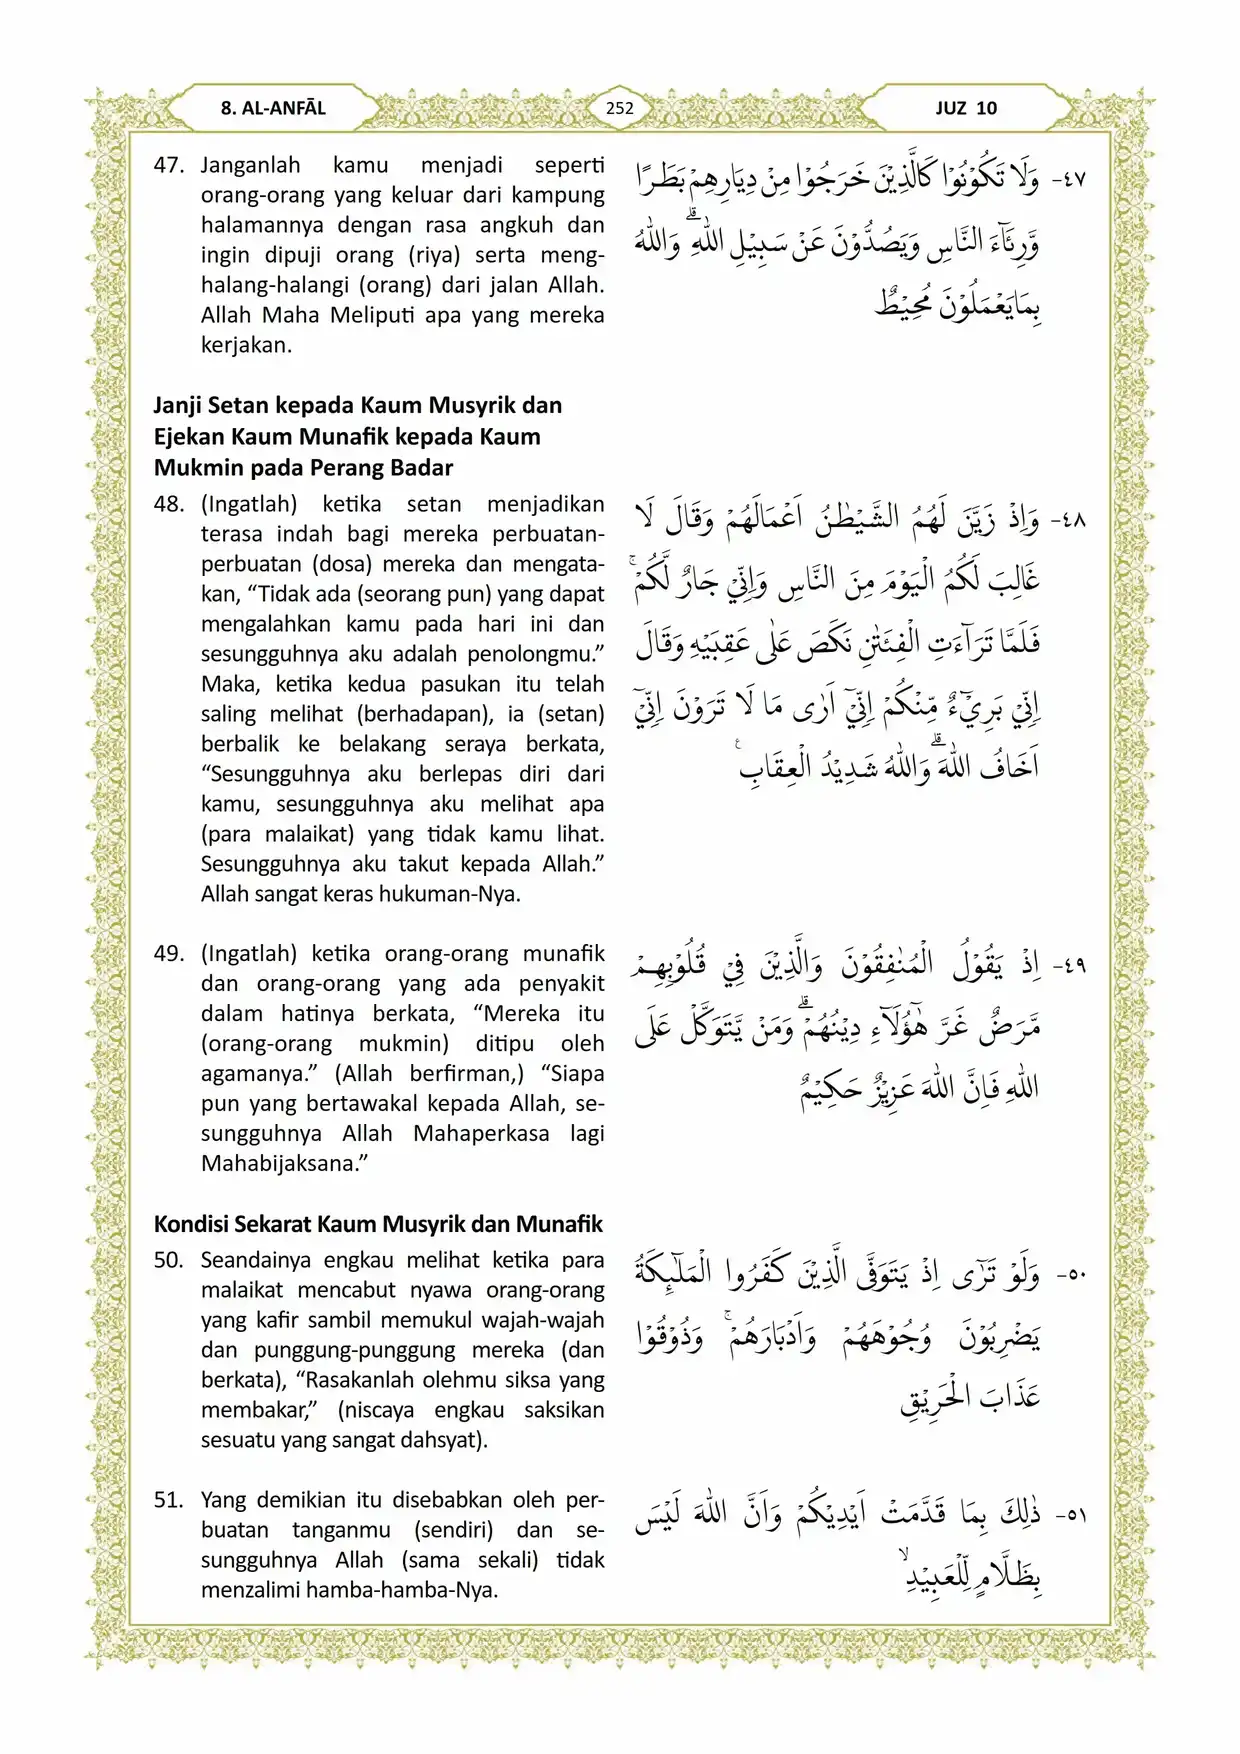 8. AL-ANFĀL
252
JUZ 10
47. Janganlah kamu menjadi seperti
orang-orang yang keluar dari kampung
halamannya dengan rasa angkuh dan
ingin dipuji orang (riya) serta meng-
halang-halangi (orang) dari jalan Allah.
Allah Maha Meliputi apa yang mereka
kerjakan.
٤٧- وَلَا تَكُوْنُوْا كَالَّذِيْنَ خَرَجُوْا مِنْ دِيَارِهِمْ بَطَرًا
وَّرِئَاۤءَ النَّاسِ وَيَصُدُّوْنَ عَنْ سَبِيْلِ اللّٰهِ ۗوَاللّٰهُ
بِمَايَعْمَلُوْنَ مُحِيْطٌ
Janji Setan kepada Kaum Musyrik dan
Ejekan Kaum Munafik kepada Kaum
Mukmin pada Perang Badar
48. (Ingatlah) ketika setan menjadikan
terasa indah bagi mereka perbuatan-
perbuatan (dosa) mereka dan mengata-
kan, “Tidak ada (seorang pun) yang dapat
mengalahkan kamu pada hari ini dan
sesungguhnya aku adalah penolongmu.”
Maka, ketika kedua pasukan itu telah
saling melihat (berhadapan), ia (setan)
berbalik ke belakang seraya berkata,
“Sesungguhnya aku berlepas diri dari
kamu, sesungguhnya aku melihat apa
(para malaikat) yang tidak kamu lihat.
Sesungguhnya aku takut kepada Allah.”
Allah sangat keras hukuman-Nya.
٤٨- وَاِذْ زَيَّنَ لَهُمُ الشَّيْطٰنُ اَعْمَالَهُمْ وَقَالَ لَا
غَالِبَ لَكُمُ الْيَوْمَ مِنَ النَّاسِ وَاِنِّيْ جَارٌ لَّكُمْۚ
فَلَمَّا تَرَاۤءَتِ الْفِئَتٰنِ نَكَصَ عَلٰى عَقِبَيْهِ وَقَالَ
اِنِّيْ بَرِيْۤءٌ مِّنْكُمْ اِنِّيْٓ اَرٰى مَا لَا تَرَوْنَ اِنِّيْٓ
اَخَافُ اللّٰهَ ۗوَاللّٰهُ شَدِيْدُ الْعِقَابِ ࣖ
49. (Ingatlah) ketika orang-orang munafik
dan orang-orang yang ada penyakit
dalam hatinya berkata, “Mereka itu
(orang-orang mukmin) ditipu oleh
agamanya.” (Allah berfirman,) “Siapa
pun yang bertawakal kepada Allah, se-
sungguhnya Allah Mahaperkasa lagi
Mahabijaksana.”
٤٩- اِذْ يَقُوْلُ الْمُنٰفِقُوْنَ وَالَّذِيْنَ فِيْ قُلُوْبِهِمْ
مَّرَضٌ غَرَّ هٰٓؤُلَاۤءِ دِيْنُهُمْۗ وَمَنْ يَّتَوَكَّلْ عَلَى
اللّٰهِ فَاِنَّ اللّٰهَ عَزِيْزٌ حَكِيْمٌ
Kondisi Sekarat Kaum Musyrik dan Munafik
50. Seandainya engkau melihat ketika para
malaikat mencabut nyawa orang-orang
yang kafir sambil memukul wajah-wajah
dan punggung-punggung mereka (dan
berkata), “Rasakanlah olehmu siksa yang
membakar,” (niscaya engkau saksikan
sesuatu yang sangat dahsyat).
٥٠- وَلَوْ تَرٰٓى اِذْ يَتَوَفَّى الَّذِيْنَ كَفَرُوا الْمَلٰۤىِٕكَةُ
يَضْرِبُوْنَ وُجُوْهَهُمْ وَاَدْبَارَهُمْۚ وَذُوْقُوْا
عَذَابَ الْحَرِيْقِ
51. Yang demikian itu disebabkan oleh per-
buatan tanganmu (sendiri) dan se-
sungguhnya Allah (sama sekali) tidak
menzalimi hamba-hamba-Nya.
٥١- ذٰلِكَ بِمَا قَدَّمَتْ اَيْدِيْكُمْ وَاَنَّ اللّٰهَ لَيْسَ
بِظَلَّامٍ لِّلْعَبِيْدِۙ